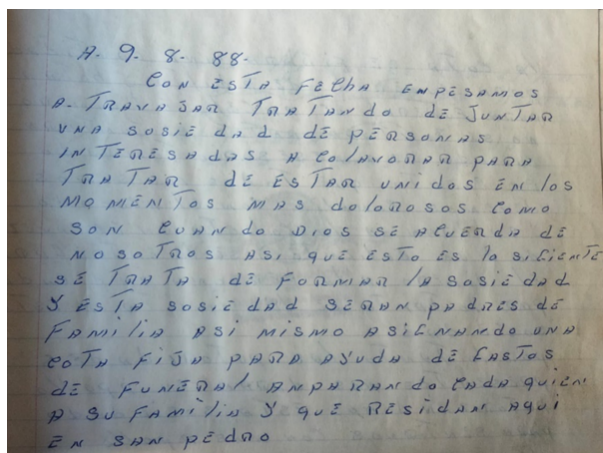 A. 9. 8. 88.
CON ESTA FELHA ENPESAMOS
A. TRAVAJAR TRATANDO dE JUNTAR
UNA SOSIEdAd dE PERSONAS
INTERESADAS A COLAVORAR PARA
TRATAR dE ESTAR UNIDOS EN LOS
MOMENTOS MAS dOLOROSOS COMO
SON CUANDO DIOS SE ACUERDA dE
NOSOTROS ASI QUE ESTO ES LO SIGIENTE
SE TRATA dE FORMAR LA SOSIEdAd
Y ESTA SOSIEdAd SERAN PADRES dE
FAMILIA ASI MISMO ASIGNANDO UNA
COTA FIJA PARA AYUDA dE GASTOS
dE FUNERAL ANPARANDO CADA QUIEN
A SU FAMILIA Y QUE RESIDAN AQUI
EN SAN PEDRO